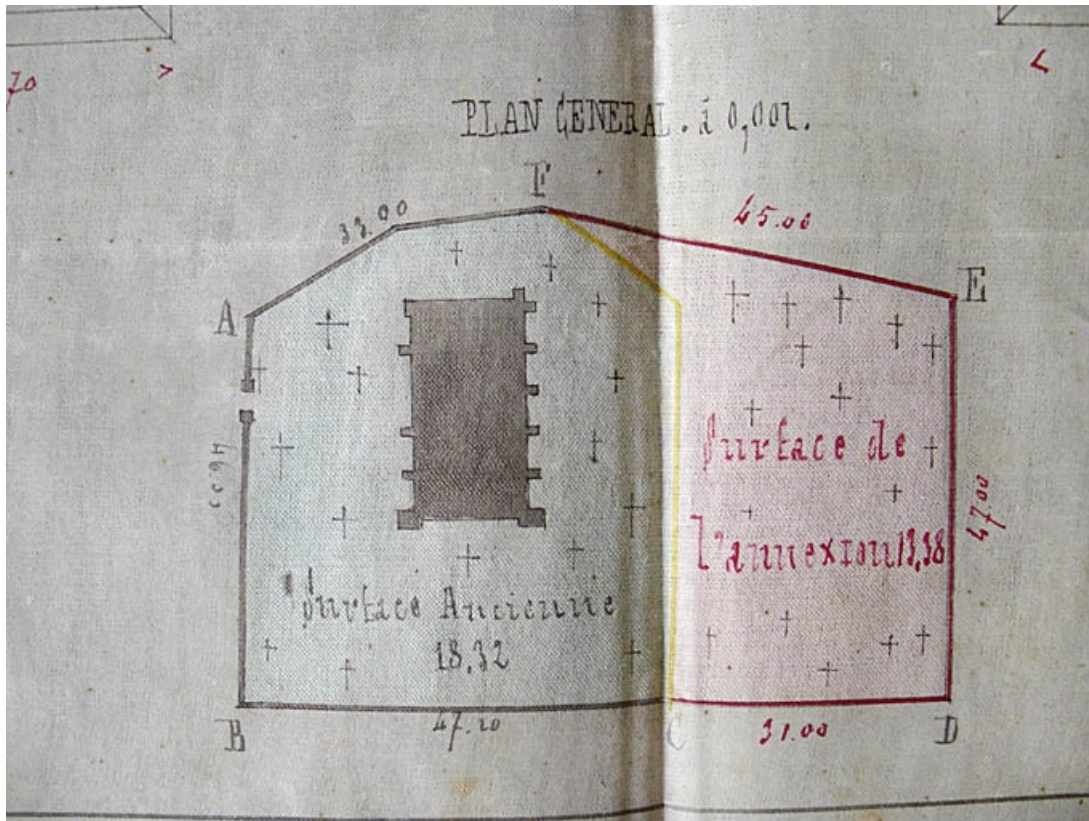 70
PLAN GENERAL. à 0,002.
F
33.00
45.00
A
E
46.00
Surface de
l'annexion 13,38
47.00
Surface Ancienne
18,32
B
47.20
C
31.00
D